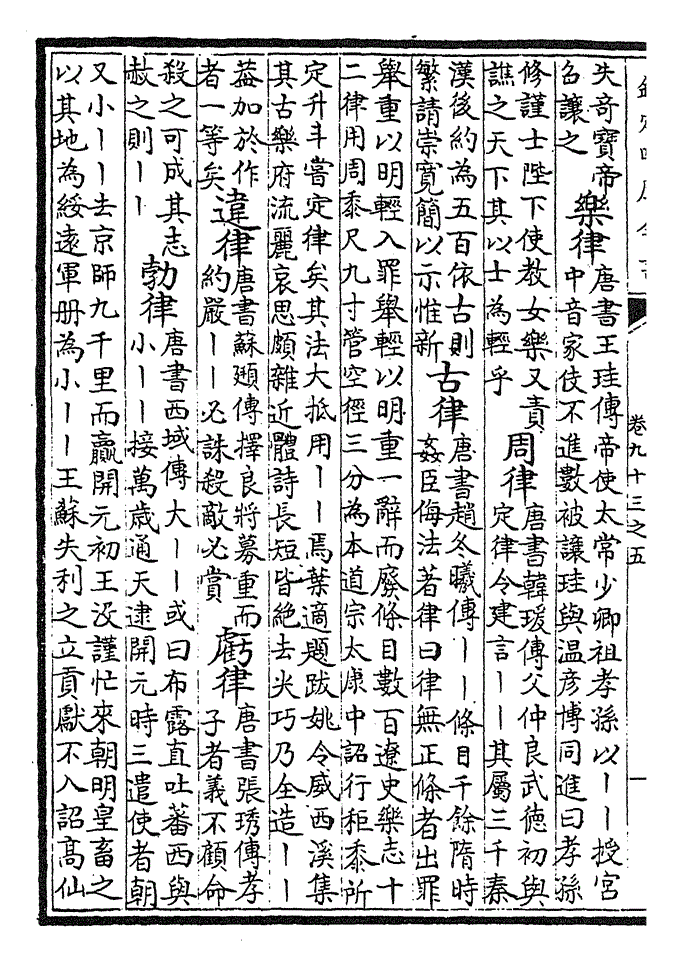 卷九十三之五
一
失奇寶帝
名讓之
樂律
唐書王珪傳帝使太常少卿祖孝孫以丨丨授宮
中音家伎不進數被讓珪與温彦博同進曰孝孫
修謹士陛下使教女樂又責
譙之天下其以士為輕乎
周律
唐書韓瑗傳父仲良武德初與
定律令建言丨丨其屬三千秦
漢後約為五百依古則
繁請崇寛簡以示惟新
古律
唐書趙冬曦傳丨丨條目千餘隋時
姦臣侮法著律曰律無正條者出罪
舉重以明輕入罪舉輕以明重一辭而廢條目數百遼史樂志十
二律用周黍尺九寸管空徑三分為本道宗太康中詔行秬黍所
定升斗嘗定律矣其法大抵用丨丨焉葉適題跋姚令威西溪集
其古樂府流麗哀思頗雜近體詩長短皆絶去尖巧乃全造丨丨
葢加於作
者一等矣
違律
唐書蘇頲傳擇良將募重而
約嚴丨丨必誅殺敵必賞
虧律
唐書張琇傳孝
子者義不顧命
殺之可成其志
赦之則丨丨
勃律
唐書西域傳大丨丨或曰布露直吐蕃西與
小丨丨接萬歲通天逮開元時三遣使者朝
又小丨丨去京師九千里而贏開元初王没謹忙來朝明皇畜之
以其地為綏遠軍册為小丨丨王蘇失利之立貢獻不入詔高仙